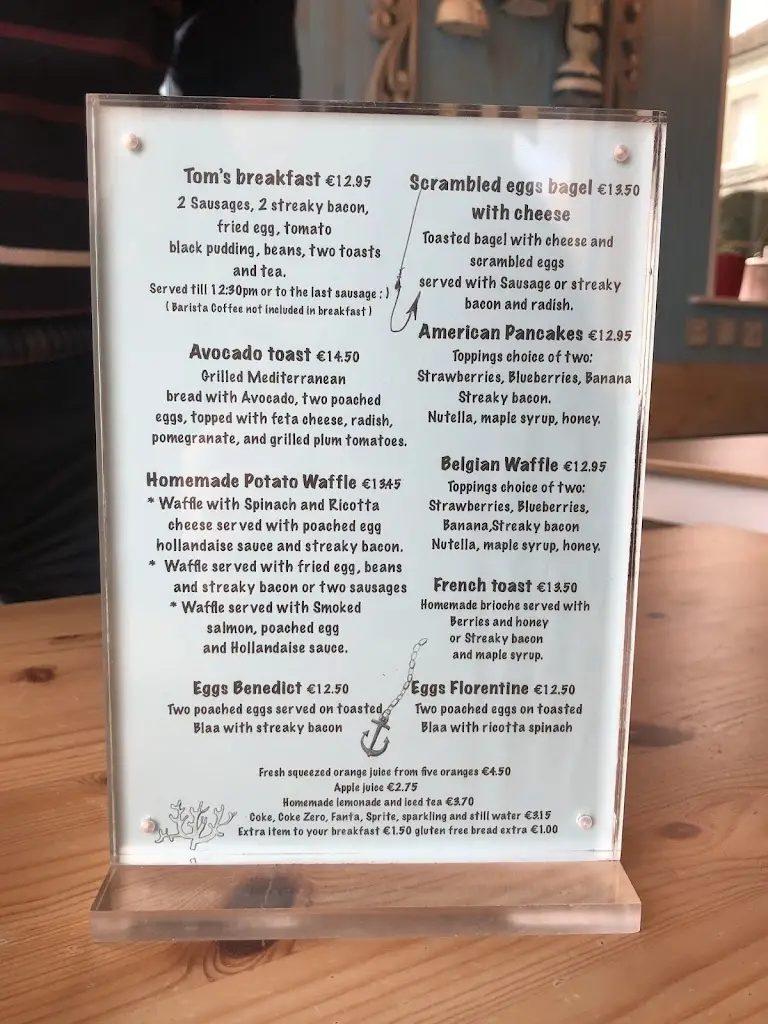 Tom's breakfast €12.95
2 Sausages, 2 streaky bacon,
fried egg, tomato
black pudding, beans, two toasts
and tea.
Served till 12:30pm or to the last sausage : )
( Barista Coffee not included in breakfast )
Avocado toast €14.50
Grilled Mediterranean
bread with Avocado, two poached
eggs, topped with feta cheese, radish,
pomegranate, and grilled plum tomatoes.
Homemade Potato Waffle €13.45
* Waffle with Spinach and Ricotta
cheese served with poached egg
hollandaise sauce and streaky bacon.
* Waffle served with fried egg, beans
and streaky bacon or two sausages
* Waffle served with Smoked
salmon, poached egg
and Hollandaise sauce.
Eggs Benedict €12.50
Two poached eggs served on toasted
Blaa with streaky bacon
Scrambled eggs bagel €13.50
with cheese
Toasted bagel with cheese and
scrambled eggs
served with Sausage or streaky
bacon and radish.
American Pancakes €12.95
Toppings choice of two:
Strawberries, Blueberries, Banana
Streaky bacon.
Nutella, maple syrup, honey.
Belgian Waffle €12.95
Toppings choice of two:
Strawberries, Blueberries,
Banana,Streaky bacon
Nutella, maple syrup, honey.
French toast €13.50
Homemade brioche served with
Berries and honey
or Streaky bacon
and maple syrup.
Eggs Florentine €12.50
Two poached eggs on toasted
Blaa with ricotta spinach
Fresh squeezed orange juice from five oranges €4.50
Apple juice €2.75
Homemade lemonade and iced tea €3.70
Coke, Coke Zero, Fanta, Sprite, sparkling and still water €3.15
Extra item to your breakfast €1.50 gluten free bread extra €1.00